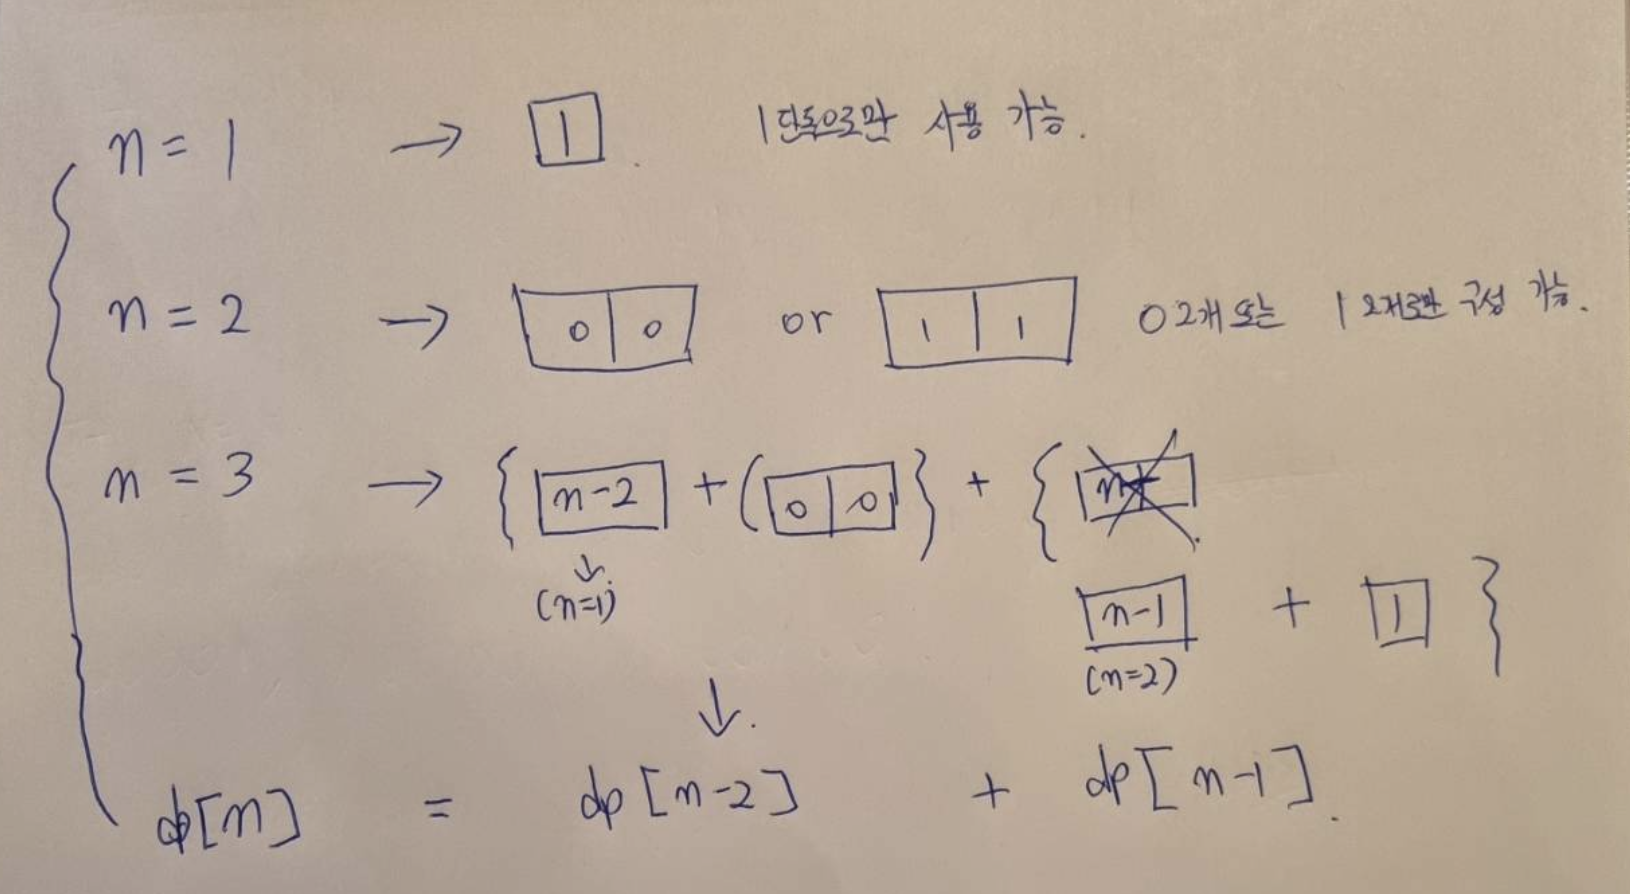 n = 1 → 1 1 단독으로만 사용 가능.
n = 2 → 0 0 or 1 1 0 2개 또는 1 2개로만 구성 가능.
n = 3 → { n-2 + ( 0 0 } + {
(n=1)
n-1 + 1 }
(n=2)
↓.
dp[n] = dp[n-2] + dp[n-1].